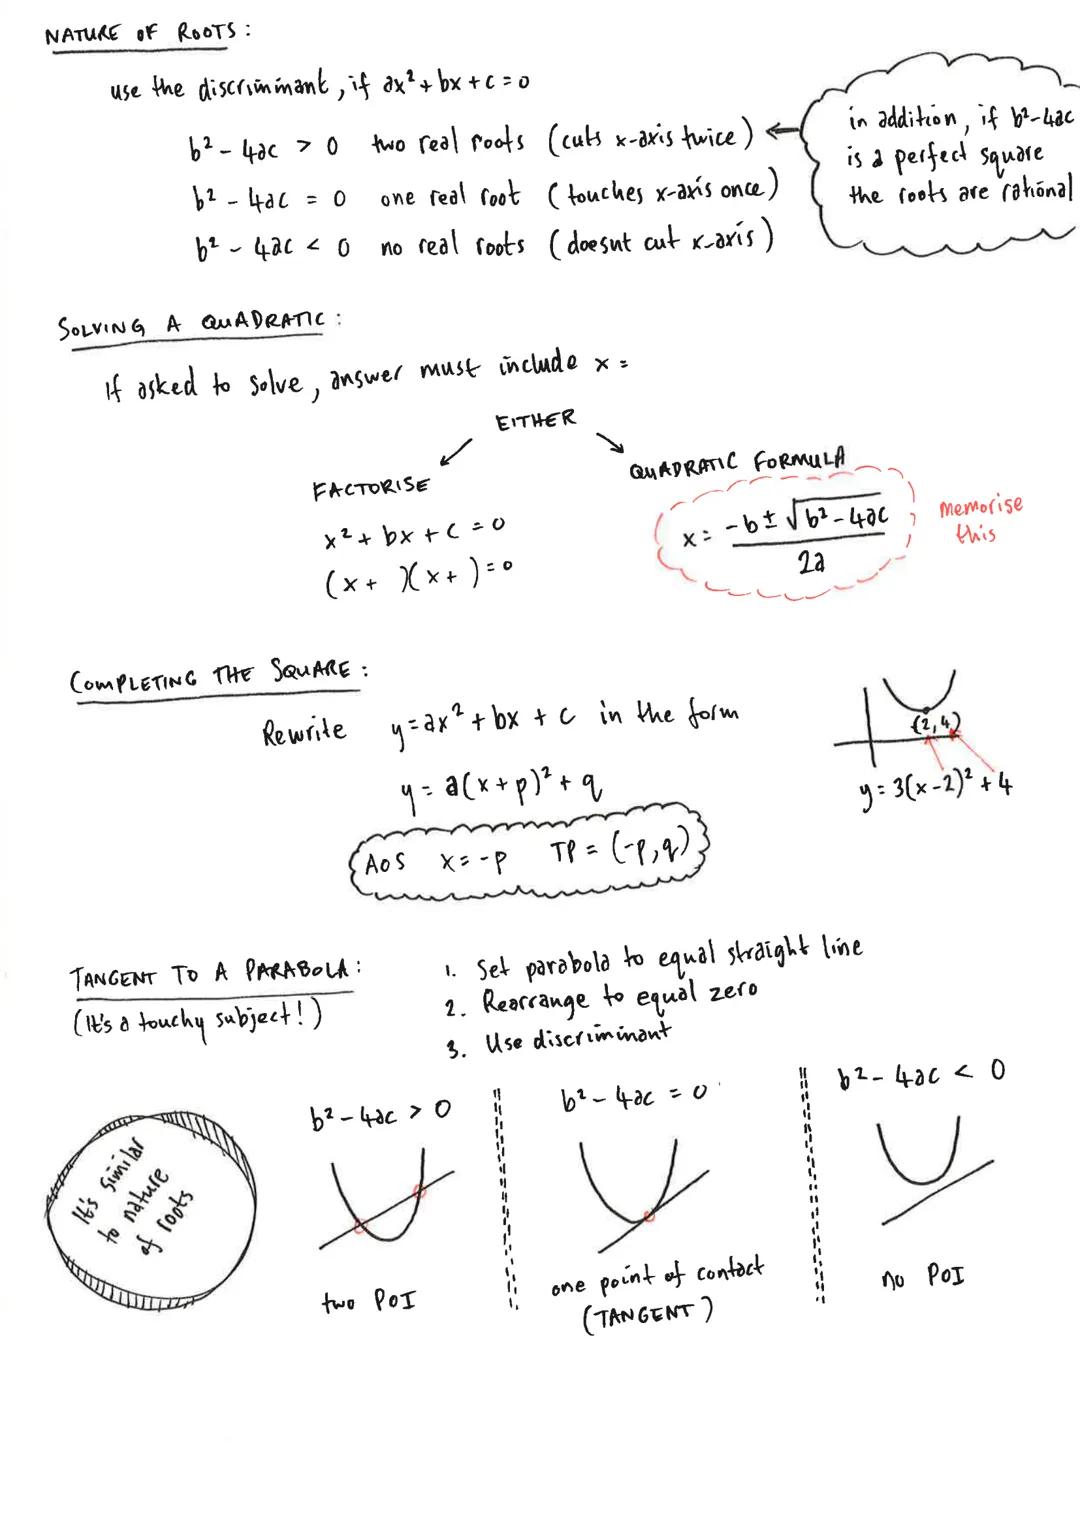 NATURE OF ROOTS :
use the discriminant, if ax² + bx + c = 0
b² - 4ac > 0 two real roots (cuts x-axis twice)
b² - 4ac = 0 one real root (touches x-axis once)
b² - 4ac < 0 no real roots (doesnt cut x-axis)
in addition, if b²-4ac
is a perfect square
the roots are rational
SOLVING A QUADRATIC :
If asked to solve, answer must include x =
EITHER
FACTORISE
x² + bx + c = 0
(x + )(x + ) = 0
QUADRATIC FORMULA
x = (-b ± √(b² - 4ac)) / 2a
memorise
this
COMPLETING THE SQUARE :
Rewrite y = ax² + bx + c in the form
y = a(x + p)² + q
AOS x = -p TP = (-p, q)
(2, 4)
y = 3(x - 2)² + 4
TANGENT TO A PARABOLA :
(It's a touchy subject!)
1. Set parabola to equal straight line
2. Rearrange to equal zero
3. Use discriminant
It's similar
to nature
of roots
b² - 4ac > 0
two POI
b² - 4ac = 0
one point of contact
(TANGENT)
b² - 4ac < 0
no POI